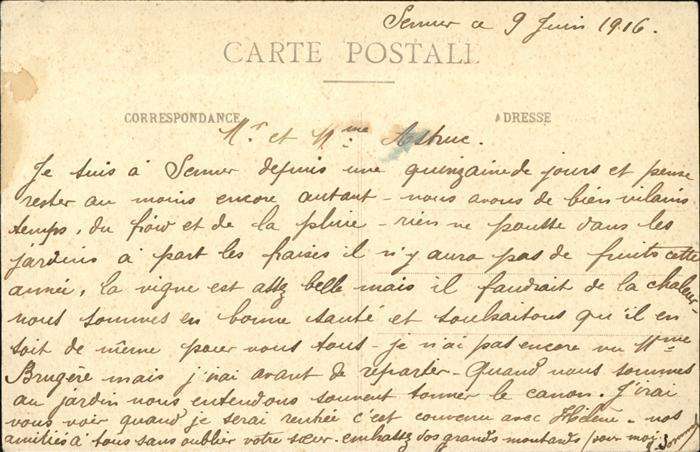 Semur ce 9 Juin 1916.
CARTE POSTALE
CORRESPONDANCE
ADRESSE
Mr et Mme Astruc.
Je suis à Semur depuis une quinzaine de jours et pense
rester au moins encore autant - nous avons de bien vilains
temps, du froid et de la pluie - rien ne pousse dans les
jardins à part les fraises il n'y aura pas de fruits cette
année, la vigne est assez belle mais il faudrait de la chaleur
nous sommes en bonne santé et souhaitons qu'il en
soit de même pour vous tous - je n'ai pas encore vu Mme
Brugère mais j'irai avant de repartir - Quand nous sommes
au jardin nous entendons souvent tonner le canon. J'irai
vous voir quand je serai rentrée c'est convenu avec Hélène - nos
amitiés à tous sans oublier votre sœur. embrassez vos grands moutards pour moi.